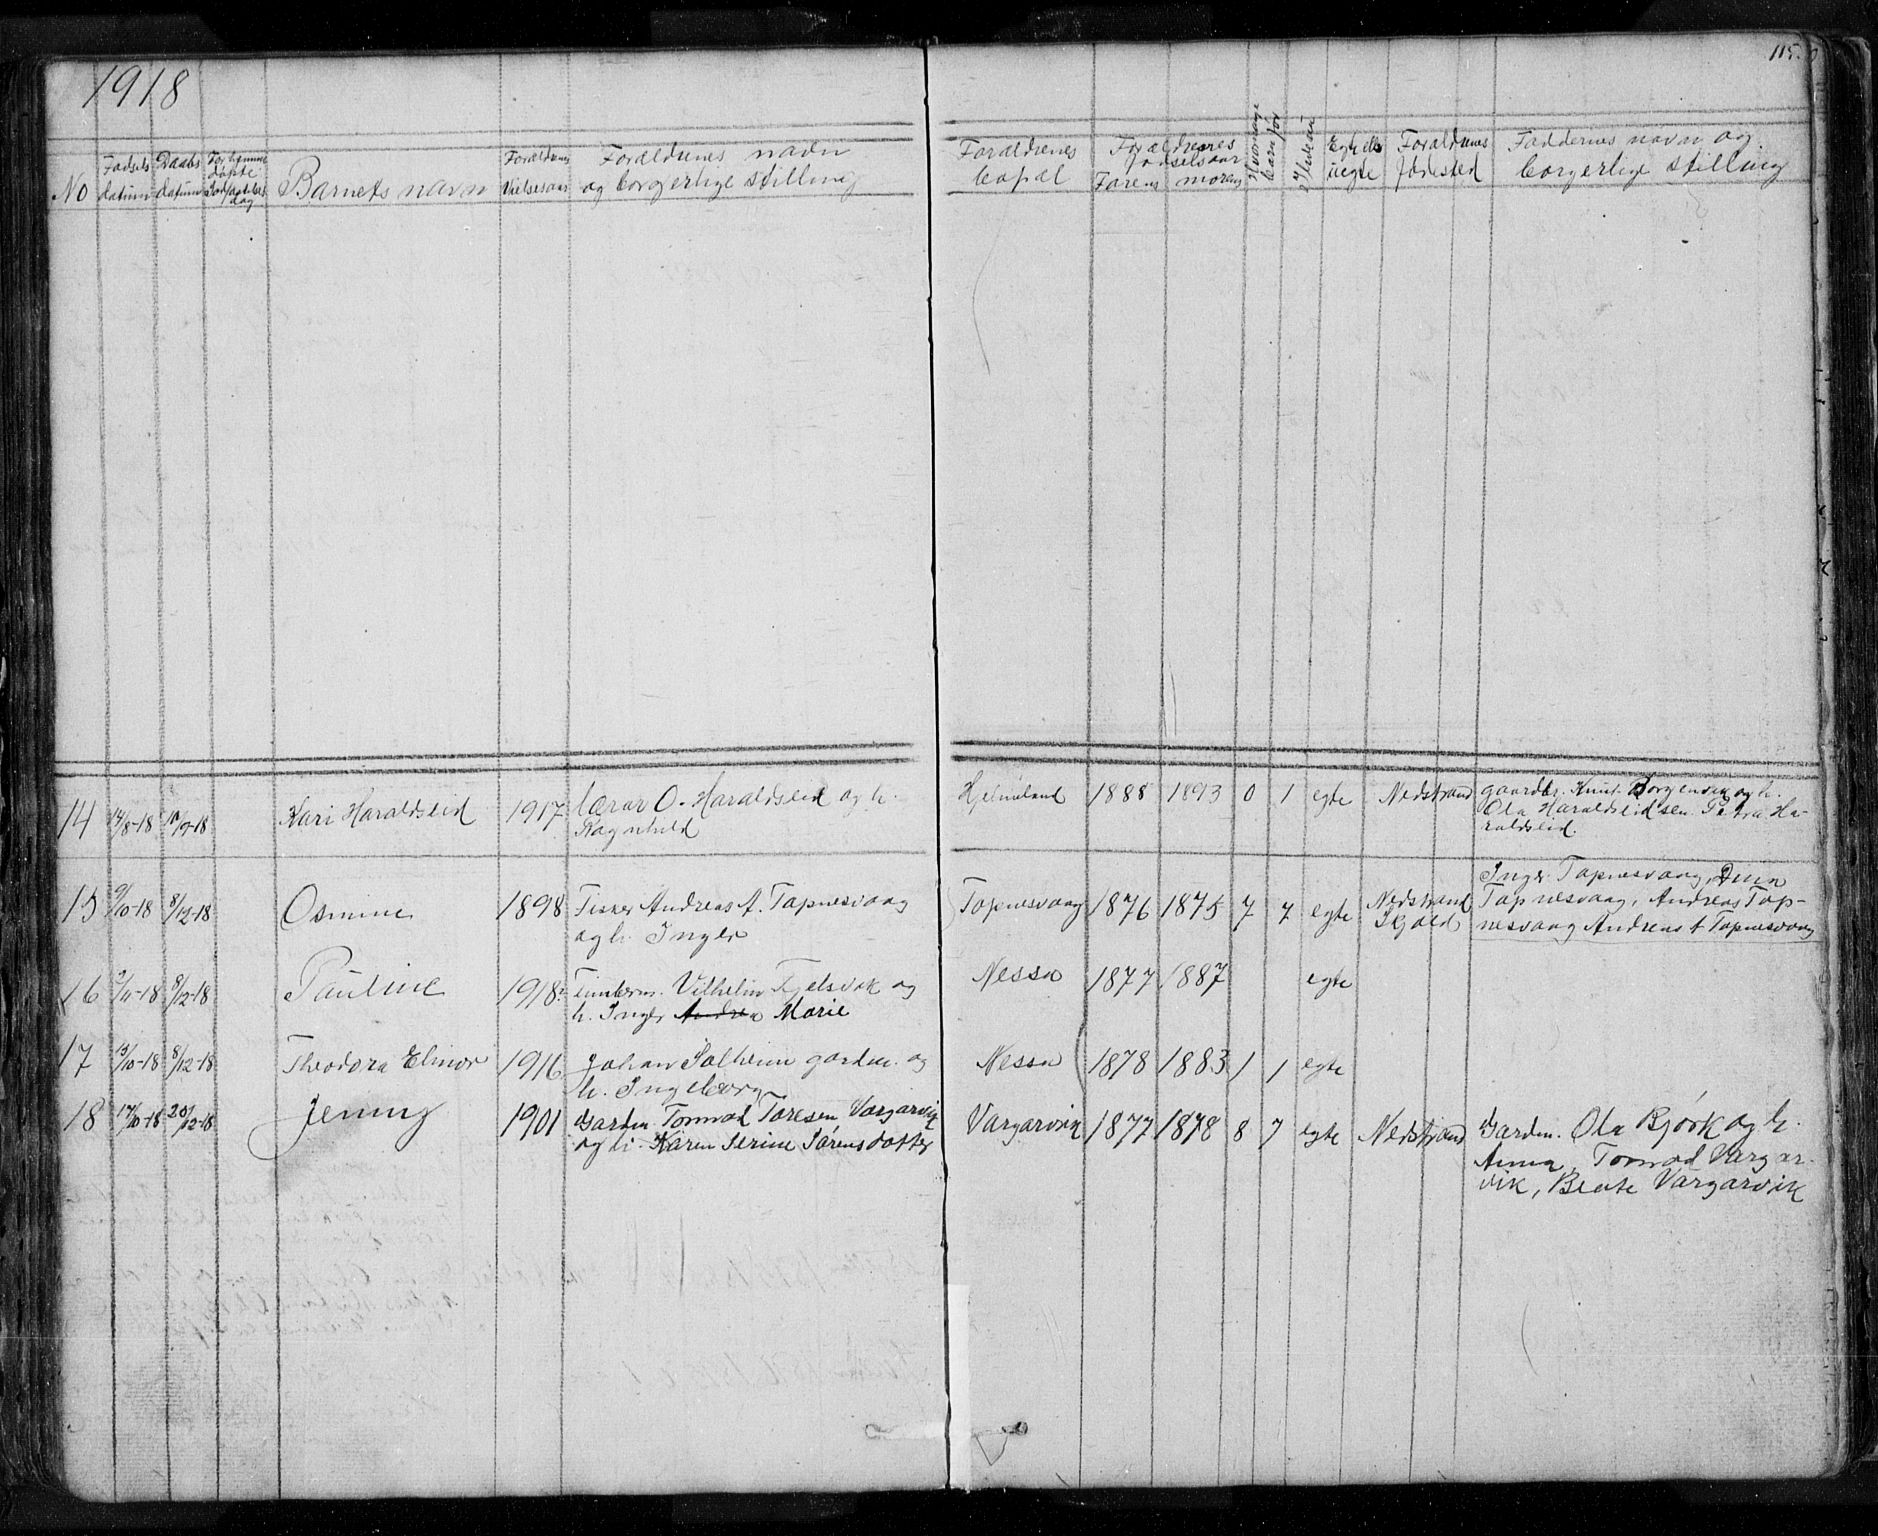 1918
115.
No
Fødsels datum
Daabs datum
Barnets navn
Forældrenes Vielsesaar
Forældrenes navn og borgerlige stilling
Forældrenes bopæl
Forældrenes fødselsaar
Farens
morens
Hvormange barn før
Egte eller uegte
Forældrenes fødested
Faddernes navn og borgerlige stilling
14 14/8-18 10/9-18 Kari Haraldseid 1917 lærar O. Haraldseid og h. Hjelmeland 1888 1893 0 1 egte Nedstrand gaardbr. Knut Borgenvik og h.
Ragnhild Ola Haraldseid sen. Petra Ha-
raldseid.
Inger Tapnesvaag,
15 9/10-18 8/12-18 Osmine 1898 Fisker Andreas A. Tapnesvaag Tapnesvaag 1876 1875 7 7 egte Nedstrand Tapnesvaag, Andreas Tap-
og h. Inger Skjold nesvaag Andreas A Tapnesvaag
16 9/11-18 8/12-18 Pauline 1918 Tømberm. Vilhelm Fjelsvik og Nessa 1877 1887 egte
h. Inger Andrea Marie
17 13/10-18 8/12-18 Theodora Elinor 1916 Johan Solheim gardm. og Nessa 1878 1883 1 1 egte
h. Ingeborg
18 17/10-18 20/12-18 Jenny 1901 Garden. Tormod Toresen Vargarvik Vargarvik 1877 1878 8 7 egte Nedstrand Garden. Ola Bjørk og h.
og h. Karen Serine Sørensdotter Anna, Tormod Vargar-
vik, Beate Vargarvik